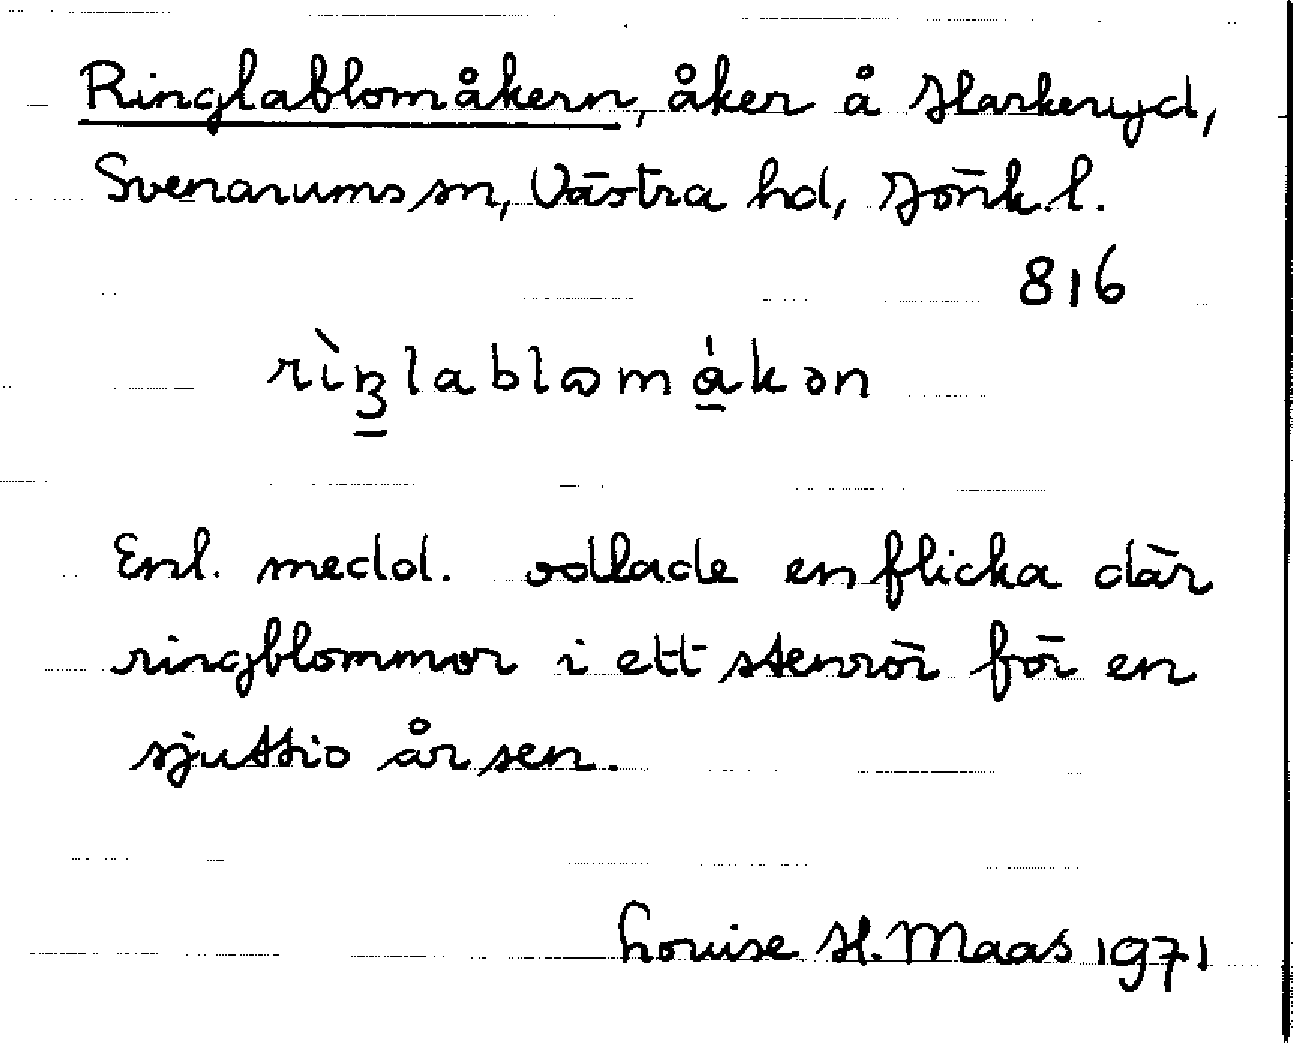 Ringlablomåkern, åker å Harkeryd,
Svenarums sn, Västra hd, Jönk. l.
816
rìꞑlablɷmákən
Enl. medd. odlade en flicka där
ringblommor i ett stenrör för en
sjuttio år sen.
Louise H. Maas 1971